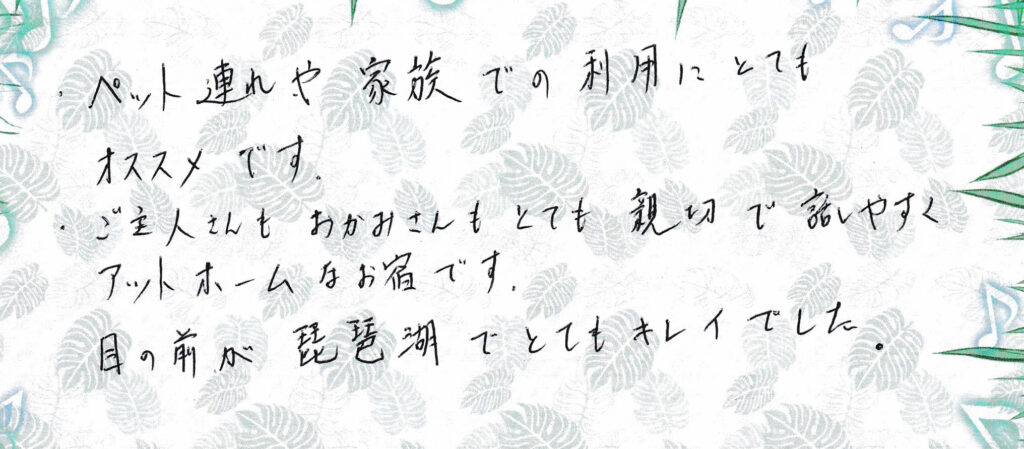 ・ペット連れや家族での利用にとても
オススメです.
・ご主人さんもおかみさんもとても親切で話しやすく
アットホームなお宿です.
目の前が琵琶湖でとてもキレイでした。